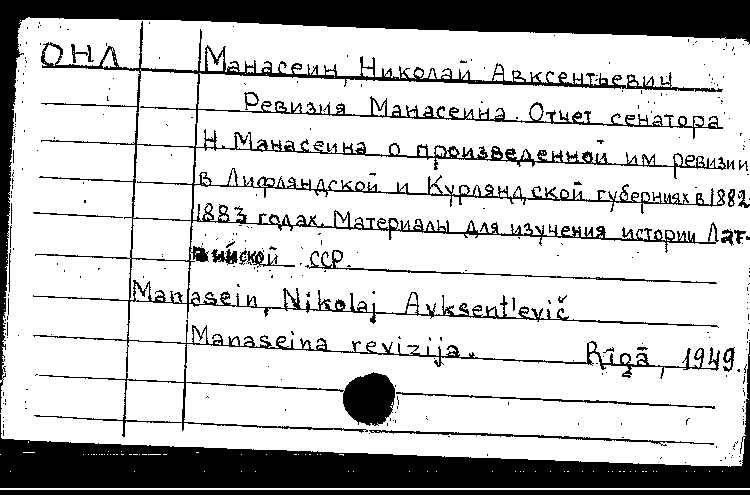 ОНЛ Манасеин, Николай Авксентьевич
Ревизия Манасеина. Отчет сенатора
Н. Манасеина о произведенной им ревизии
в Лифляндской и Курляндской губерниях в 1882-
1883 годах. Материалы для изучения истории Лат-
вийской ССР.
Manasein, Nikolaj Avksent'evič
Manaseina revizija. Rīgā, 1949.